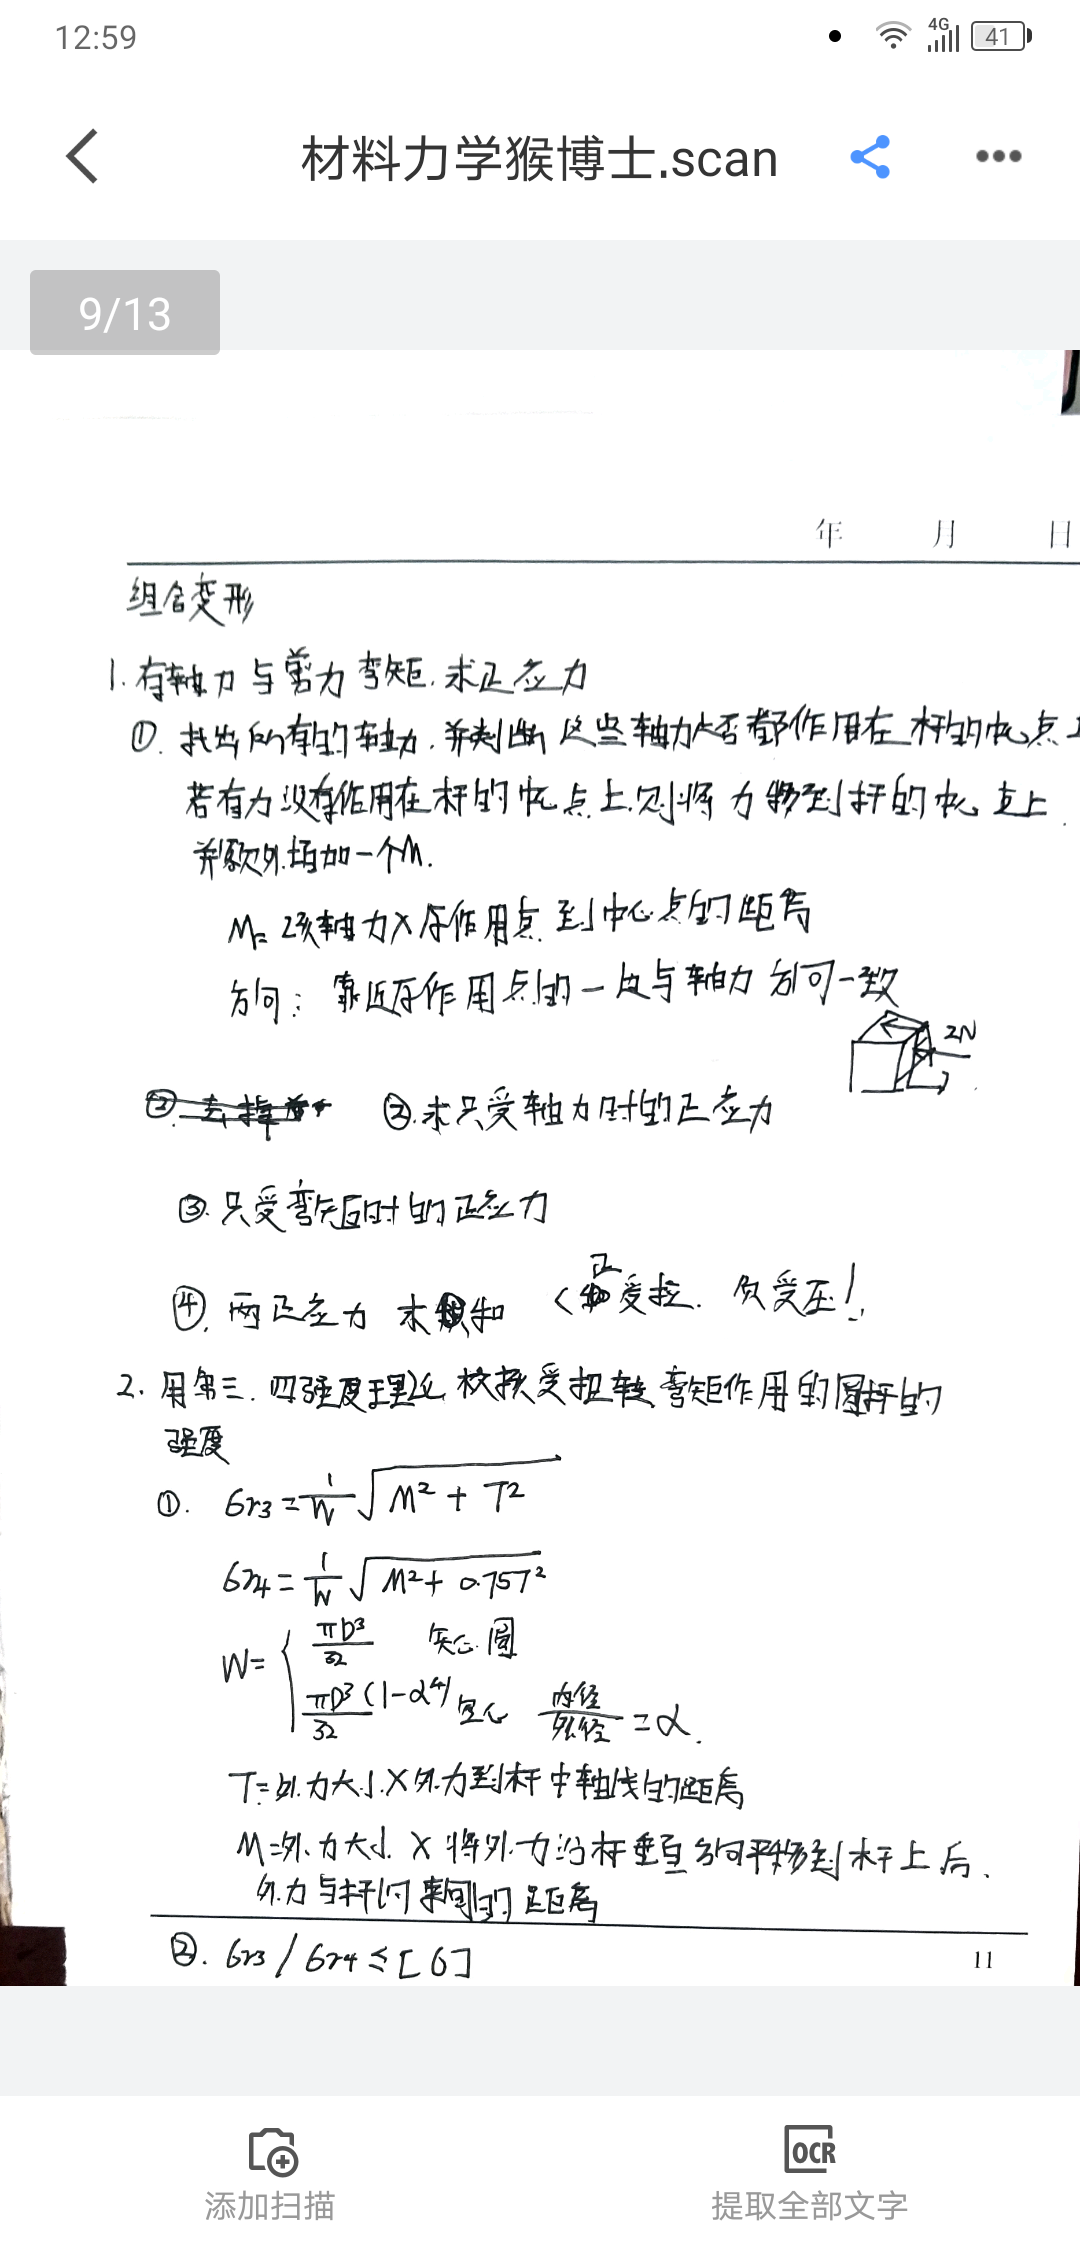 12:59
4G
41
材料力学猴博士.scan
9/13
年 月 日
组合变形
1.有轴力与剪力弯矩.求正应力
①.找出所有的轴力.并判断这些轴力是否都作用在杆的中心点上
若有力没有作用在杆的中心点上.则将力移到杆的中心点上.
并额外增加一个M.
M=该轴力×原作用点到中心点的距离
方向：靠近原作用点的一边与轴力方向一致
2N
②.去掉 ②.求只受轴力时的正应力
③.只受弯矩时的正应力
④.两正应力求和 <正受拉.负受压!
2.用第三.四强度理论校核受扭转弯矩作用的圆杆的
强度
①. σr3=1/W√M²+T²
σr4=1/W√M²+0.75T²
W={πD³/32 实心圆
πD³/32(1-α⁴)空心 内径/外径=α.
T=外力大小×外力到杆中轴线的距离
M=外力大小×将外力沿杆垂直方向平移到杆上后、
外力与杆的距离
②. σr3/σr4≤[σ]
11
添加扫描
OCR
提取全部文字